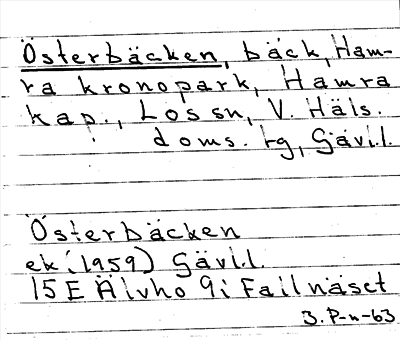 Österbäcken, bäck, Ham-
ra kronopark, Hamra
kap., Los sn, V. Häls.
doms. rg, Gävl.l.
Österbäcken
ek. (1959) Gävl.l.
15E Älvho 9i Fallnäset
3. P-n-63